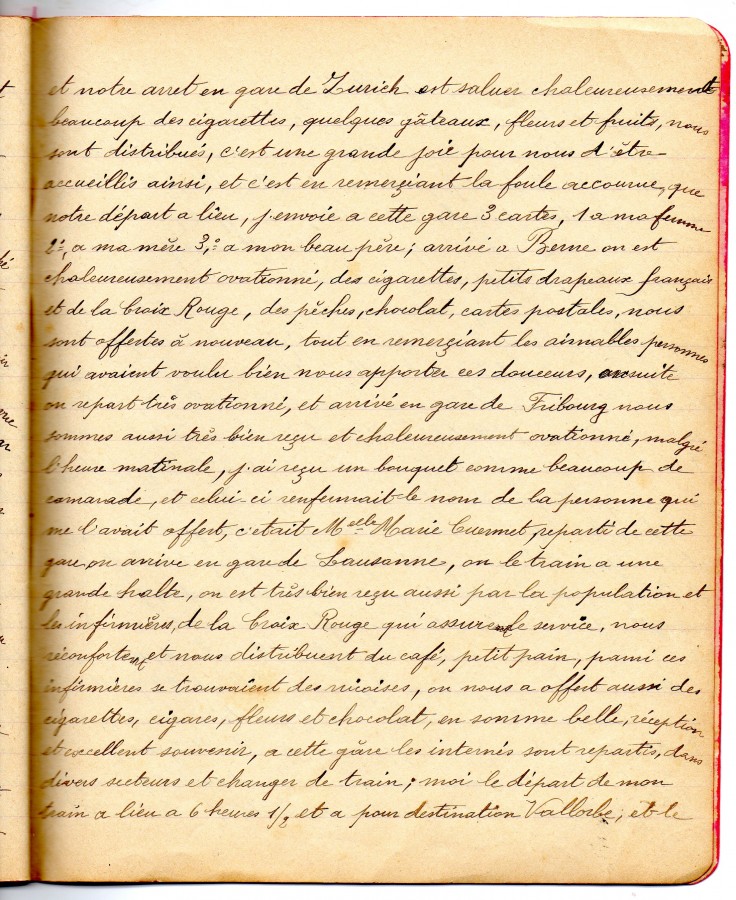 et notre arret en gare de Zurich est saluer chaleureusement
beaucoup des cigarettes, quelques gâteaux, fleurs et fruits, nous
sont distribués, c'est une grande joie pour nous d'être
accueillis ainsi, et c'est en remerçiant la foule accourue, que
notre départ a lieu, j'envoie a cette gare 3 cartes, 1 a ma femme
2°, a ma mère 3,° a mon beau père; arrivé a Berne on est
chaleureusement ovationné, des cigarettes, petits drapeaux français
et de la Croix Rouge, des pêches, chocolat, cartes postales, nous
sont offertes à nouveau, tout en remerçiant les aimables personnes
qui avaient voulu bien nous apporter ces douceurs, ensuite
on repart très ovationné, et arrivé en gare de Fribourg nous
sommes aussi très bien reçu et chaleureusement ovationné, malgré
l'heure matinale, j'ai reçu un bouquet comme beaucoup de
camarade, et celui-ci renfermait le nom de la personne qui
me l'avait offert, c'etait Melle Marie reparti de cette
gare, on arrive en gare de Lausanne, ou le train a une
grande halte, on est très bien reçu aussi par la population et
les infirmières, de la Croix Rouge qui assure le service, nous
réconfortent, et nous distribuent du café, petit pain, pami ces
infirmières se trouvaient des niçoises, on nous a offert aussi des
cigarettes, cigares, fleurs et chocolat, en somme belle, réception
et excellent souvenir, a cette gâre les internés sont repartis, dans
divers secteurs et changer de train; moi le départ de mon
train a lieu a 6 heures 1/2 et a pour destination Vallorbe, et le